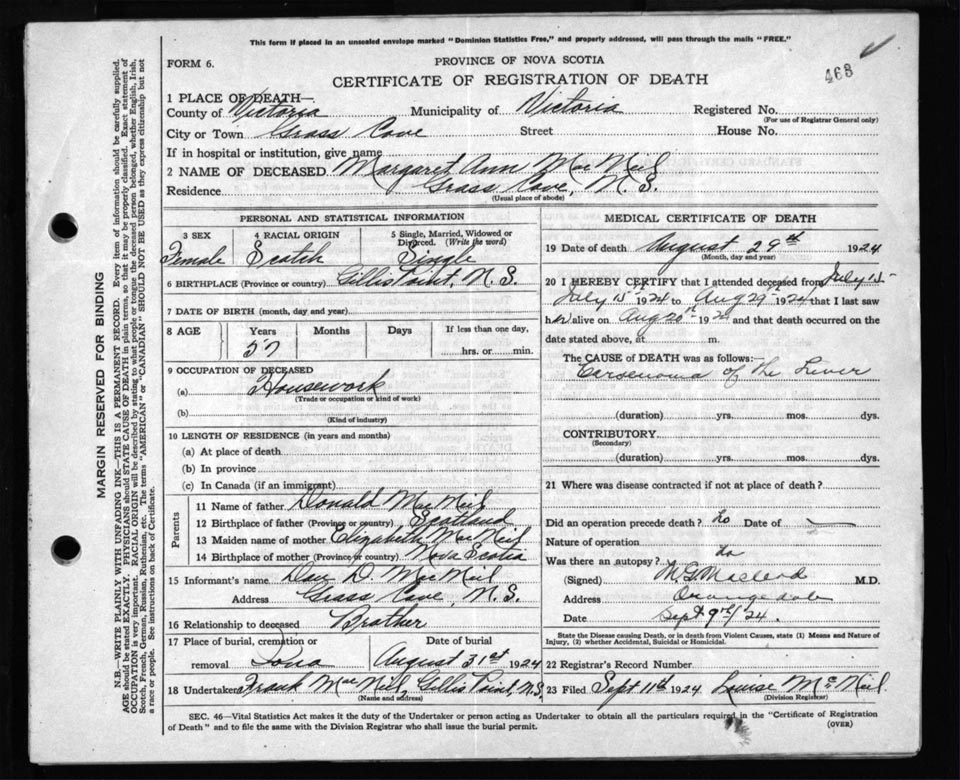 This form if placed in an unsealed envelope marked "Dominion Statistics Free," and properly addressed, will pass through the mails "FREE."
FORM 6.
PROVINCE OF NOVA SCOTIA
468
CERTIFICATE OF REGISTRATION OF DEATH
1 PLACE OF DEATH—
County of Victoria Municipality of Victoria Registered No.
(For use of Registrar General only)
City or Town Grass Cove Street House No.
If in hospital or institution, give name
2 NAME OF DECEASED Margaret Ann MacNeil
Residence Grass Cove, N.S.
(Usual place of abode)
PERSONAL AND STATISTICAL INFORMATION
3 SEX 4 RACIAL ORIGIN 5 Single, Married, Widowed or Divorced. (Write the word)
Female Scotch Single
6 BIRTHPLACE (Province or country) Gillis Point, N.S.
7 DATE OF BIRTH (month, day and year)
8 AGE Years Months Days If less than one day,
57 hrs. or min.
9 OCCUPATION OF DECEASED
(a) Housework
(Trade or occupation or kind of work)
(b)
(Kind of industry)
10 LENGTH OF RESIDENCE (in years and months)
(a) At place of death
(b) In province
(c) In Canada (if an immigrant)
Parents
11 Name of father Donald MacNeil
12 Birthplace of father (Province or country) Scotland
13 Maiden name of mother Elizabeth MacNeil
14 Birthplace of mother (Province or country) Nova Scotia
15 Informant's name Dan D. MacNeil
Address Grass Cove, N.S.
16 Relationship to deceased Brother
17 Place of burial, cremation or Date of burial
removal Iona August 31st 1924
18 Undertaker Frank MacNeil, Gillis Point, N.S.
(Name and address)
MEDICAL CERTIFICATE OF DEATH
19 Date of death August 29th 1924
(Month, day and year)
20 I HEREBY CERTIFY that I attended deceased from July 15
July 15 1924 to Aug 29 1924 that I last saw
her alive on Aug 20th 192 and that death occurred on
date stated above, at m.
The CAUSE OF DEATH was as follows:
Carsenoma of the Liver
(duration) yrs. mos. dys.
CONTRIBUTORY
(Secondary)
(duration) yrs. mos. dys.
21 Where was disease contracted if not at place of death?
Did an operation precede death? No Date of
Nature of operation
Was there an autopsy? do
(Signed) M.G. Macleod M.D.
Address Orangedale
Date Sept. 9th/24.
State the Disease causing Death, or in death from Violent Causes, state (1) Means and Nature of
Injury, (2) whether Accidental, Suicidal or Homicidal.
22 Registrar's Record Number
23 Filed Sept 11th 1924 Louise McNeil
(Division Registrar)
SEC. 46—Vital Statistics Act makes it the duty of the Undertaker or person acting as Undertaker to obtain all the particulars required in the "Certificate of Registration
of Death" and to file the same with the Division Registrar who shall issue the burial permit.
(OVER)
MARGIN RESERVED FOR BINDING
N.B.—WRITE PLAINLY WITH UNFADING INK—THIS IS A PERMANENT RECORD. Every item of information should be carefully supplied.
AGE should be stated EXACTLY. PHYSICIANS should STATE CAUSE OF DEATH in plain terms, so that it may be properly classified. Exact statement of
OCCUPATION is very important. RACIAL ORIGIN will be described by stating to what people or tongue the deceased person belonged, whether English, Irish,
Scotch, French, German, Russian, Ruthenian, etc. The terms "AMERICAN" or "CANADIAN" SHOULD NOT BE USED as they express citizenship but not
a race or people. See instructions on back of Certificate.